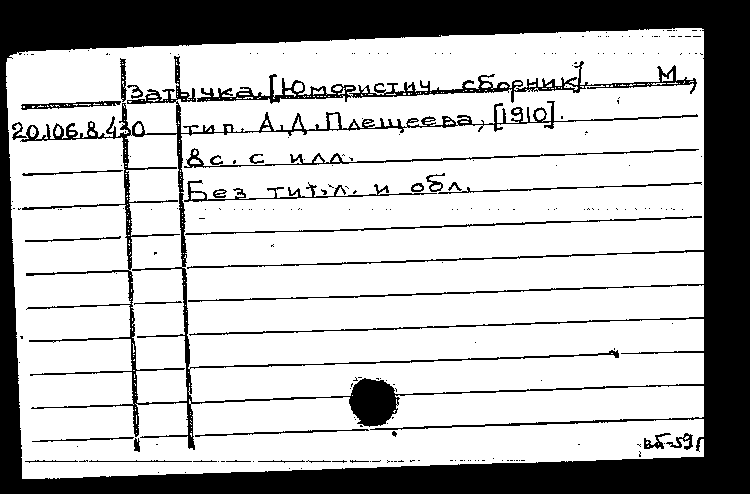 Затычка. [Юмористич. сборник]. М.,
20.106.8.430 тип. А.Д.Плещеева, [1910].
8с. с илл.
Без тит.л. и обл.
вб-59г